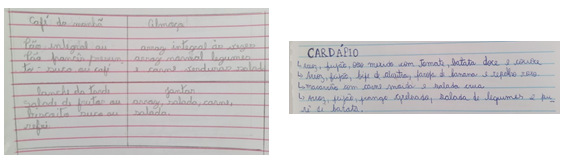 Café da manhã Almoço
Pão integral ou arroz integral às vezes
Pão francês arroz normal legumes
suco ou café e carne salada
lanche da tarde jantar
salada de frutas ou arroz, salada, carne,
biscoito suco ou salada.
refri
CARDÁPIO
arroz, feijão, ovo mexido com tomate, batata doce e couve
Arroz, feijão, bife de , farofa de banana e repolho roxo
macarrão com carne moída e salada crua
Arroz, feijão, frango grelhado, salada de legumes e pu-
rê de batata.